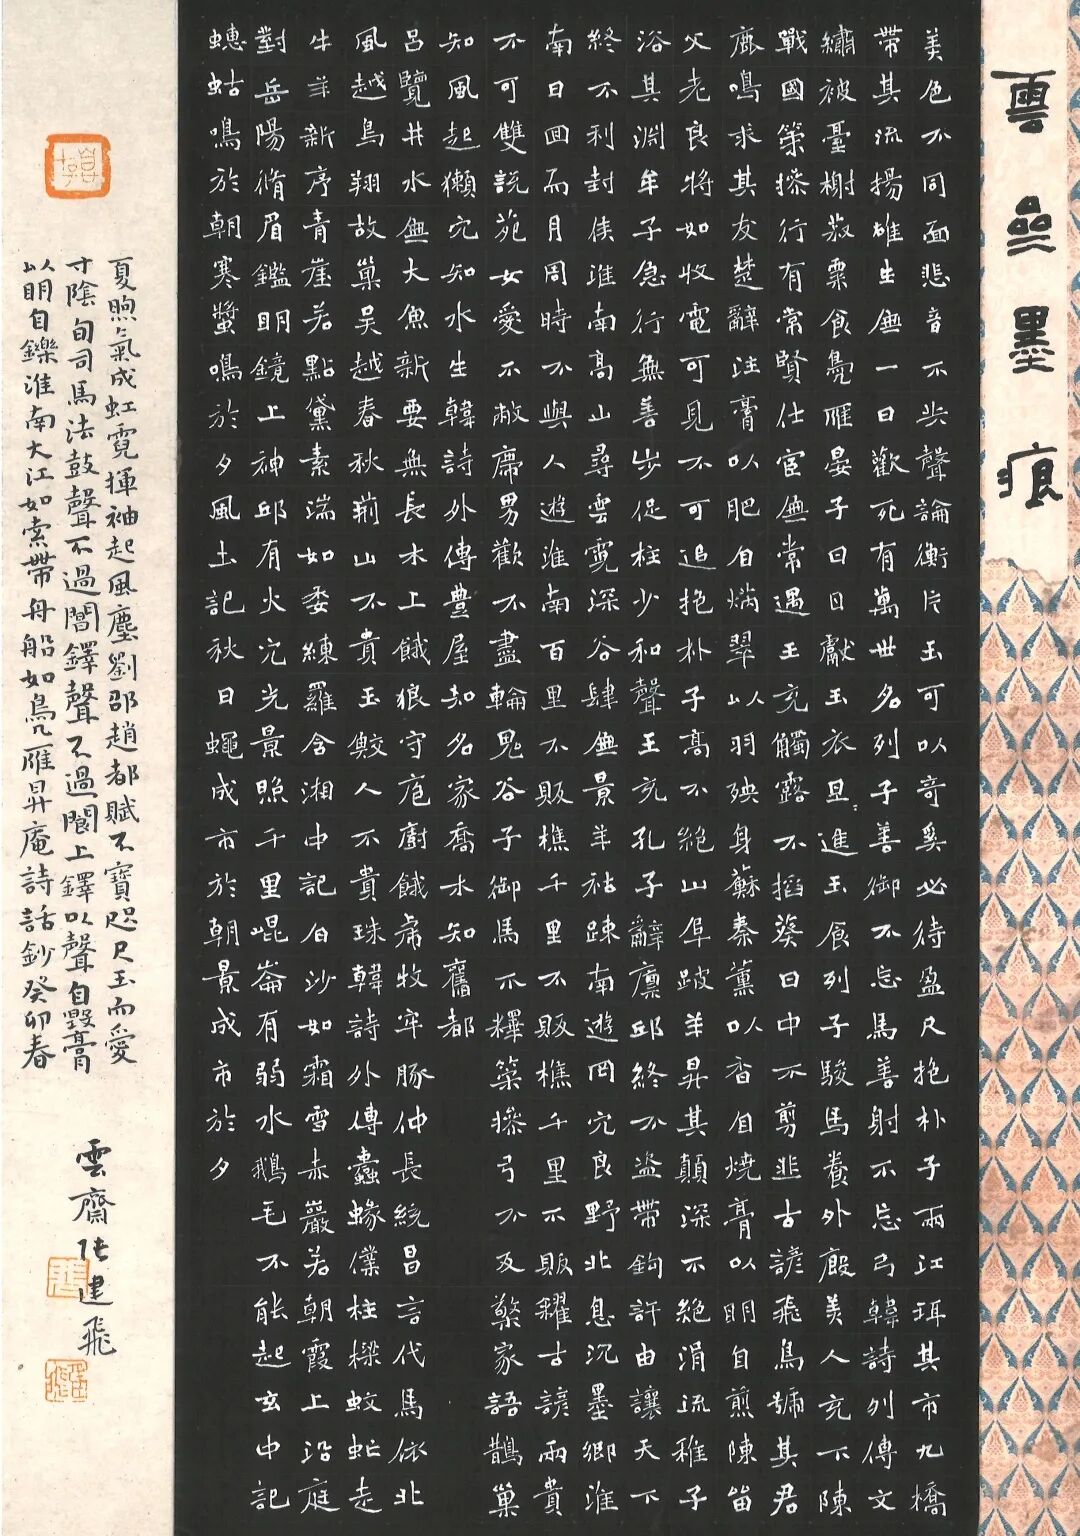 雲無墨痕
美色不同面悲音不共聲論衡片玉可以奇奚必待盈尺抱朴子兩江珥其市九橋
帶其流揚雄生無一日歡死有萬世名列子善御不忘馬善射不忘弓韓詩列傳文
繡被臺榭菽粟食鳧雁晏子日日獻玉衣旦旦進玉食列子駿馬養外廄美人充下陳
戰國策操行有常賢仕宦無常遇王充觸露不掐葵日中不剪韭古諺飛鳥號其君
鹿鳴求其友楚辭注膏以肥自焫翠以羽殃身蘇秦薰以香自燒膏以明自煎陳留
父老良將如收電可見不可追抱朴子高不絕山阜跛羊昇其顛深不絕涓流稚子
浴其淵牟子急行無善步促柱少和聲王充孔子辭廩邱終不盜帶鉤許由讓天下
終不利封侯淮南高山尋雲霓深谷肆無景羊祜疎南遊罔穴良野北息沉墨鄉淮
南日回而月周時不與人遊淮南百里不販樵千里不販樵千里不販糴古諺兩貴
不可雙說苑女愛不敝席男歡不盡輪鬼谷子御馬不釋策操弓不反檠家語鵲巢
知風起獺穴知水生韓詩外傳豐屋知名家喬木知舊都
呂覽井水無大魚新要無長木上餓狼守庖廚餓虎牧牢豚仲長統昌言代馬依北
風越鳥翔故巢吳越春秋荊山不貴玉鮫人不貴珠韓詩外傳蠹蝝仆柱樑蚊虻走
牛羊新序青崖若點黛素湍如委練羅含湘中記白沙如霜雪赤巖若朝霞上沿庭
對岳陽脩眉鑑明鏡上神邱有火穴光景照千里崐崙有弱水鵝毛不能起玄中記
蟪蛄鳴於朝寒螿鳴於夕風土記秋日蠅成市於朝景成市於夕
夏煦之氣成虹霓揮袖起風塵劉邵趙都賦不寶咫尺玉而愛
寸陰旬司馬法鼓聲不過閶鐸聲不過閬上鐸以聲自毀膏
以明自鑠淮南大江如索帶舟船如鳧雁昇庵詩話鈔癸卯春
雲齋張建飛